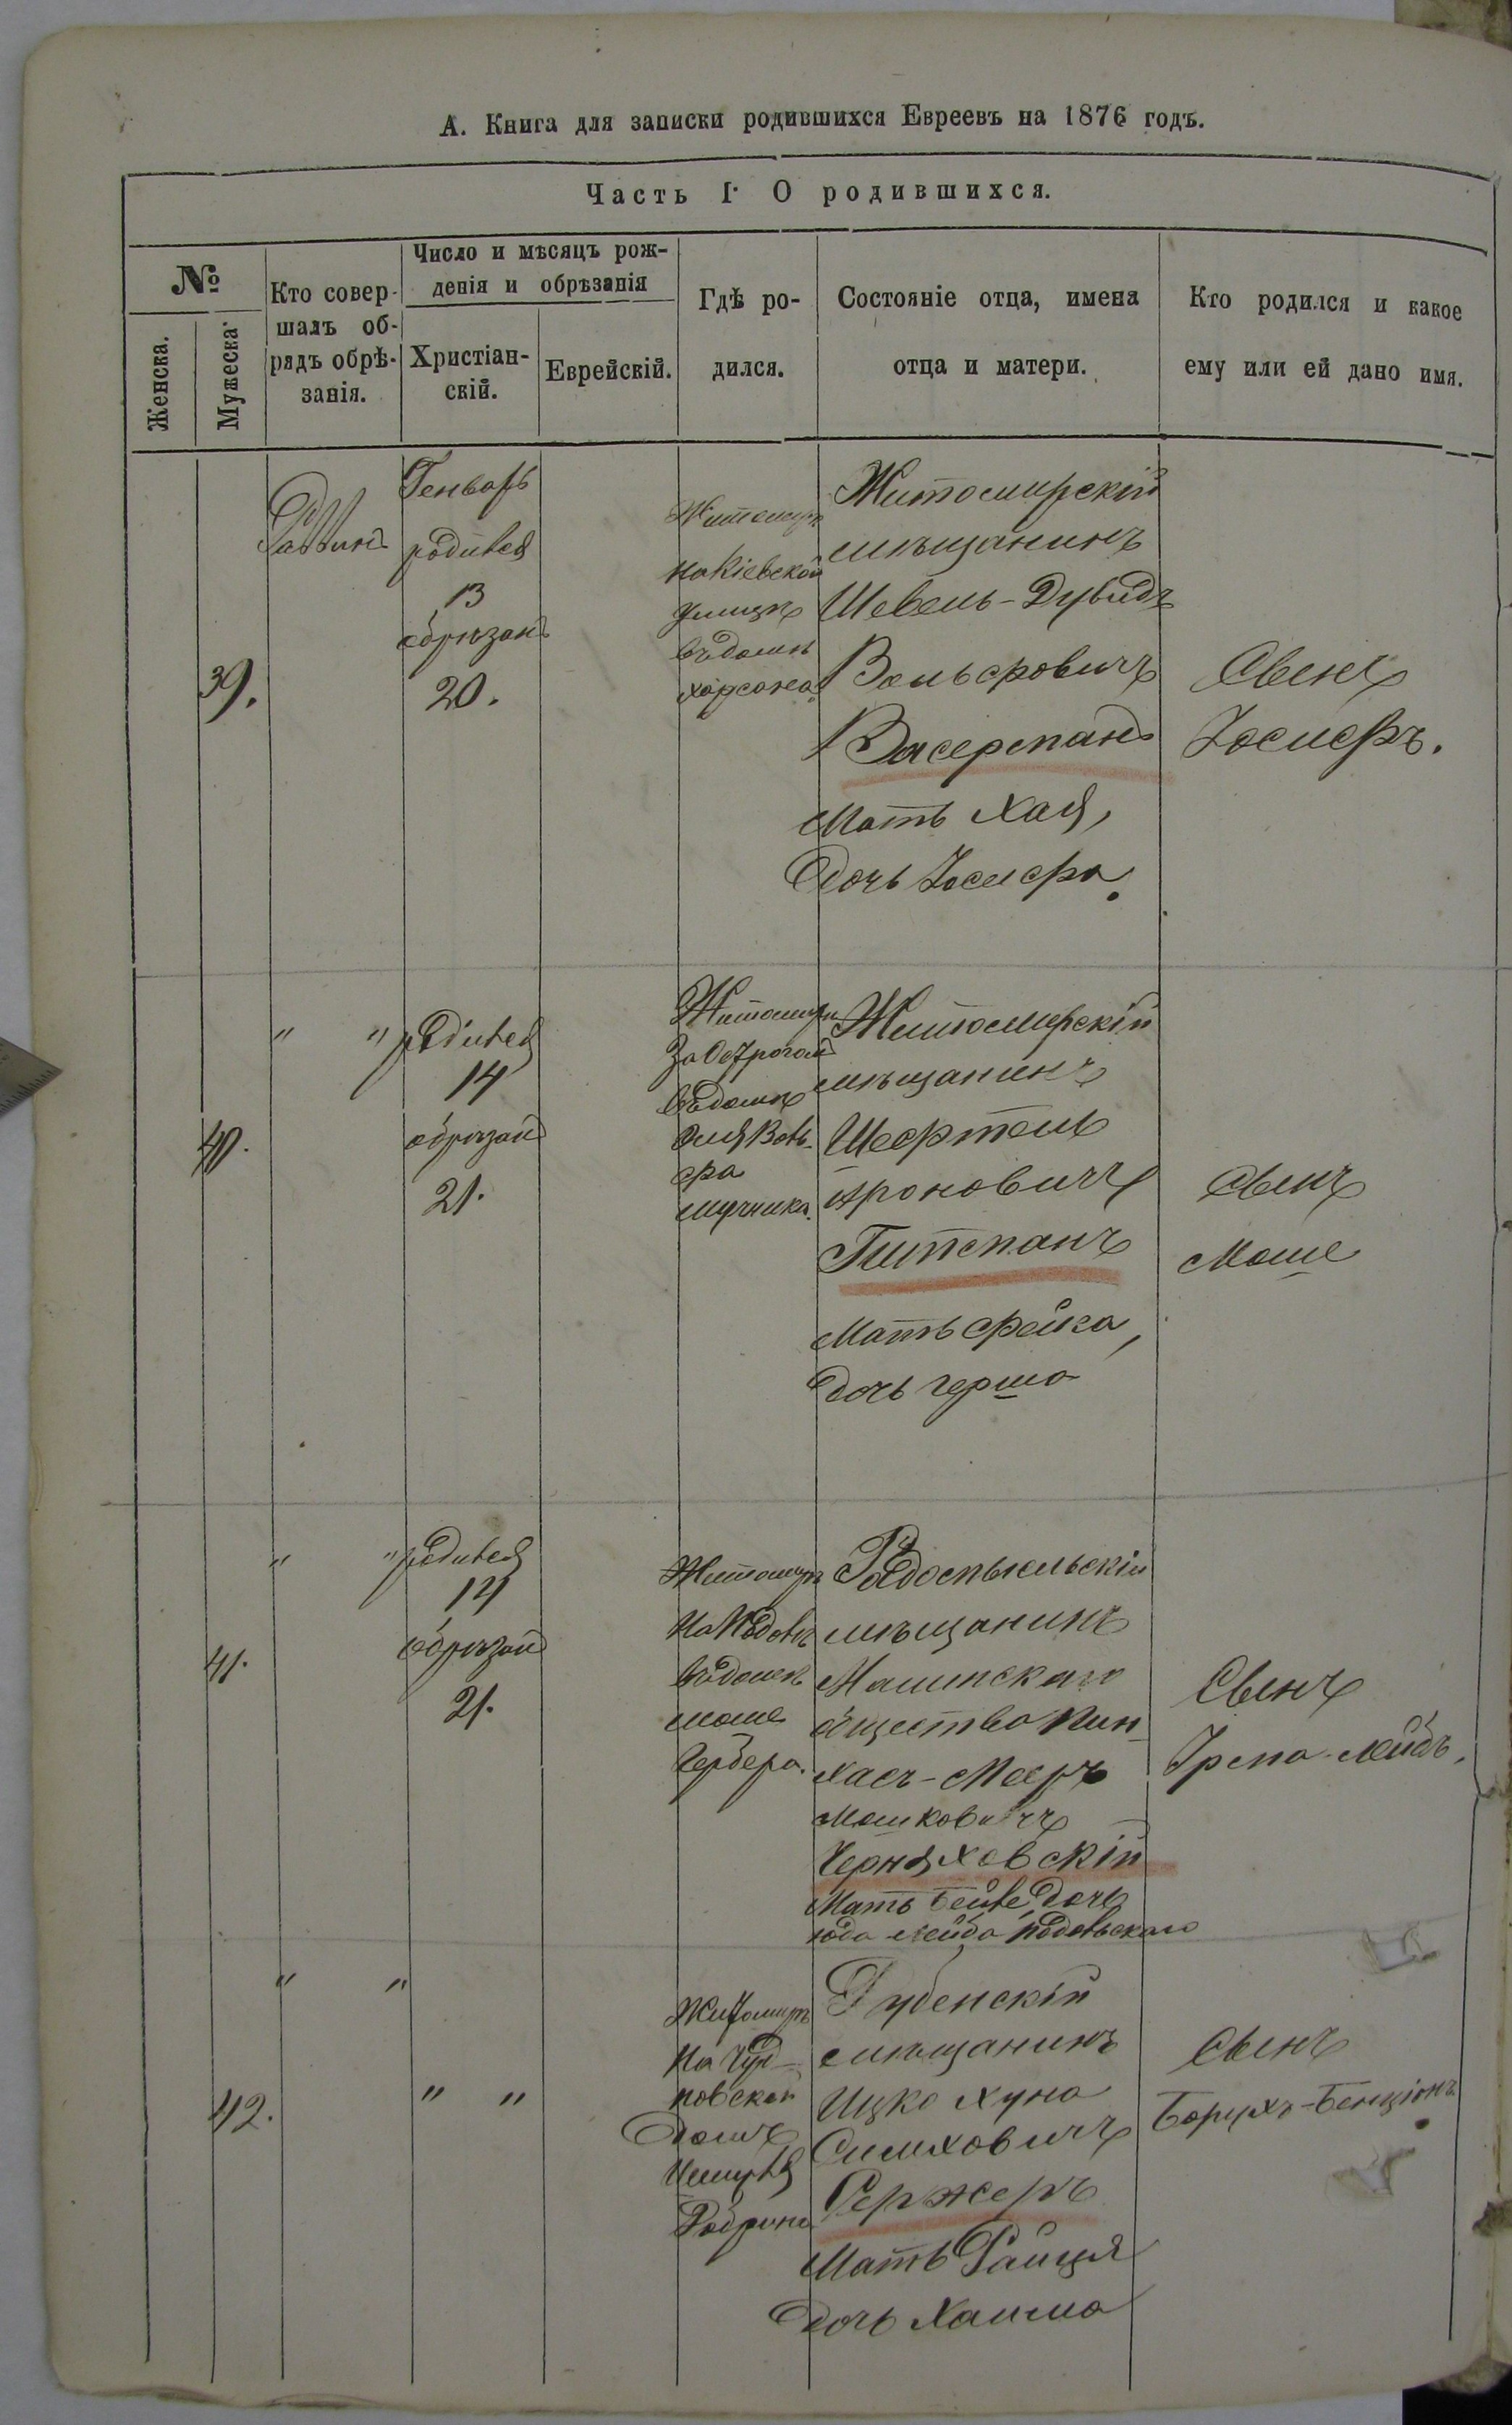 А. Книга для записки родившихся Евреевъ на 1876 годъ.
Часть I. О родившихся.
№
Женска.
Мужеска.
Кто совер-
шалъ об-
рядъ обрѣ-
занія.
Число и мѣсяцъ рож-
денія и обрѣзанія
Христіан-
скій.
Еврейскій.
Гдѣ ро-
дился.
Состояніе отца, имена
отца и матери.
Кто родился и какое
ему или ей дано имя.
39.
Раввинъ
Генварь
родился
13
обрѣзанъ
20.
Житомиръ
на Кіевской
улицѣ
въ домѣ
Житомирскій
мѣщанинъ
Шевель-Дувидъ
Вольфовичъ
Васерманъ
Мать Хая,
дочь Іосифа.
Сынъ
Іосифъ.
40.
" "
родился
14
обрѣзанъ
21.
Житомиръ
въ домѣ
Житомирскій
мѣщанинъ
Шефтель
Ароновичъ
Гитманъ
Мать Фейга,
дочь Герша
Сынъ
Моше
41.
" "
родился
14
обрѣзанъ
21.
Житомиръ
на Подолѣ
въ домѣ
Моше
Гербера.
Радомысльскій
мѣщанинъ
Малинскаго
общества Пин-
хасъ-Мееръ
Мошковичъ
Черняховскій
Мать Бейле дочь
Юда Лейба Подольскаго
Сынъ
Срма-Лейбъ.
42.
" "
" "
Житомиръ
На Чуд-
новской
домъ
Дубенскій
мѣщанинъ
Ицко Хуна
Симховичъ
Сержеръ
Мать Райця
дочь Хаима
Сынъ
Борухъ-Бенціонъ.